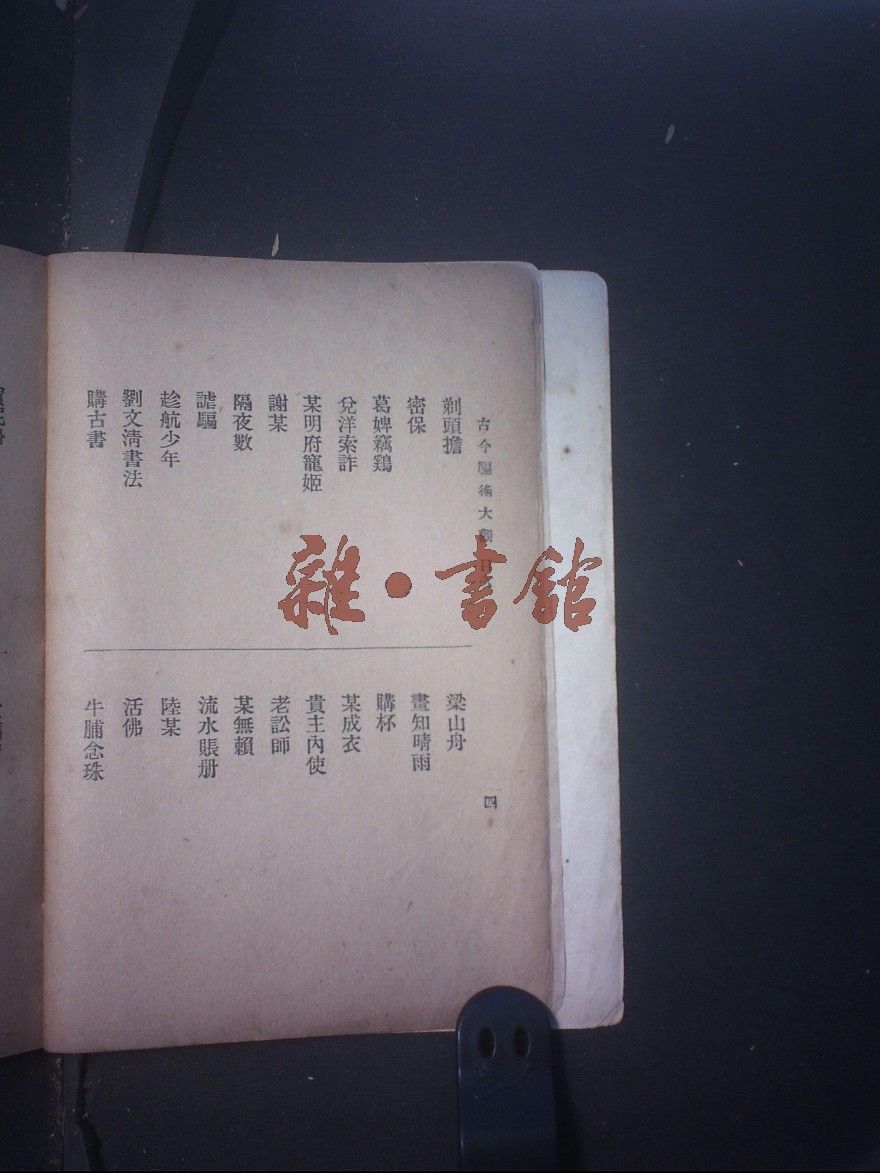 古今騙術大觀 目
剃頭擔
密保
葛婢竊鷄
兌洋索詐
某明府寵姬
謝某
隔夜數
謔騙
趁航少年
劉文淸書法
購古書
梁山舟
畫知晴雨
購杯
某成衣
貴主內使
老訟師
某無賴
流水賬册
陸某
活佛
牛脯念珠
四
雜·書館